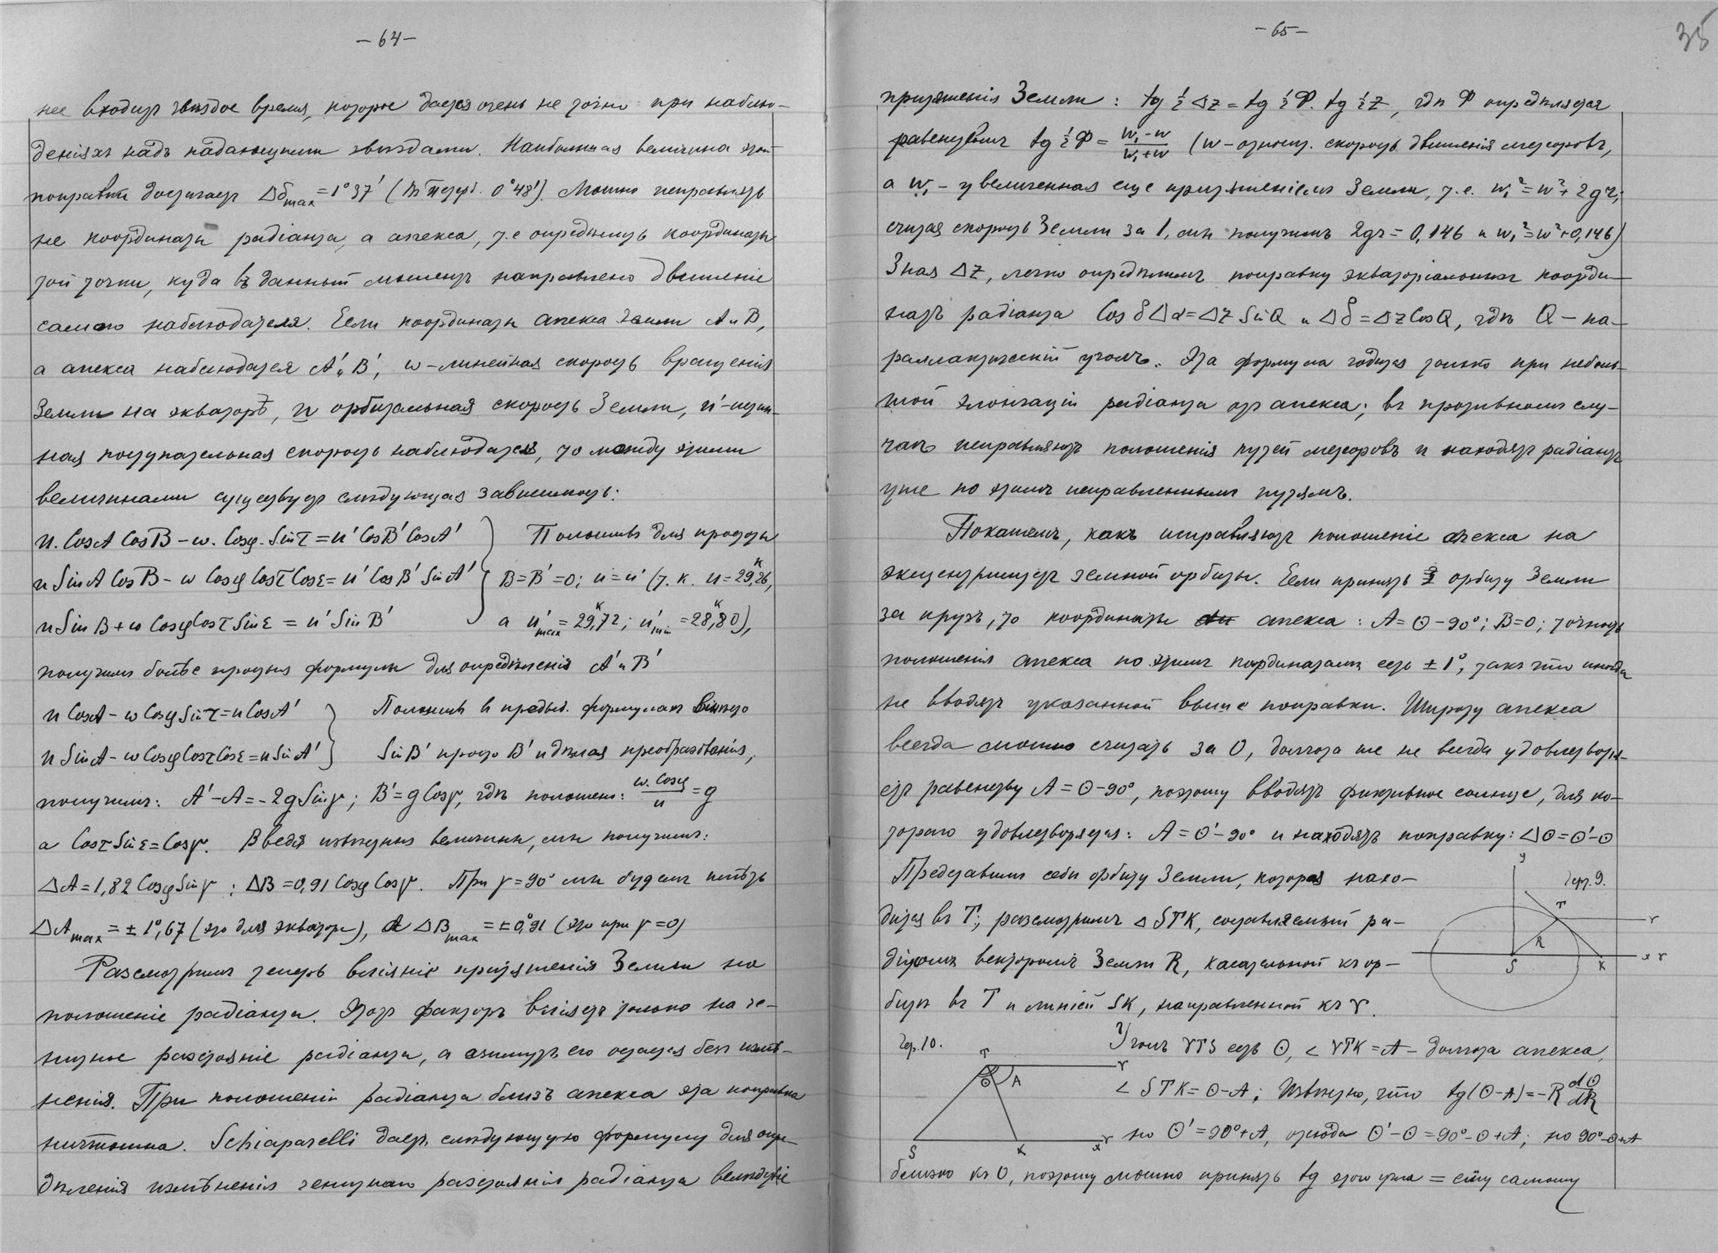 —64—
нее входитъ звѣздное время, которое дается очень не точно при наблю-
деніяхъ надъ падающими звѣздами. Наибольшая величина этой
поправки достигаетъ Δδmax = 1°37′ (въ 0°48′). Можно исправлять
не координаты радіанта, а апекса, т.е. опредѣлить координаты
той точки, куда въ данный моментъ направлено движеніе
самого наблюдателя. Если координаты апекса Земли A и B,
а апекса наблюдателя A′ и B′, w – линейная скорость вращенія
Земли на экваторѣ, u орбитальная скорость Земли, u′ –
ная поступательная скорость наблюдателя, то между этими
величинами существуетъ слѣдующая зависимость:
u. CosA CosB – w. Cosφ. Sinτ = u′ CosB′ CosA′
u SinA CosB – w Cosφ Cosτ Cosε = u′ CosB′ SinA′
u Sin B + w Cosφ Cosτ Sinε = u′ Sin B′
Положивъ для простоты
B=B′=0; u=u′ (т.к. u=29,26,
а u′max = 29,72; u′min = 28,80),
получимъ болѣе простыя формулы для опредѣленія A′ и B′
u CosA – w Cosφ Sinτ = u CosA′
u SinA – w Cosφ Cosτ Cosε = u SinA′
Положивъ въ предыд. формулахъ вмѣсто
SinB′ просто B′ и дѣлая преобразованія,
получимъ: A′–A = –2g Sinγ; B′ = g Cosγ, гдѣ положено: w. Cosφ/u = g
а Cosτ Sinε = Cosγ. Введя извѣстныя величины, мы получимъ:
ΔA = 1,82 Cosφ Sinγ ; ΔB = 0,91 Cosφ Cosγ. При γ=90° мы будемъ имѣть
ΔAmax = ±1°,67 (это для экватора), а ΔBmax = ±0°,91 (это при γ=0)
Разсмотримъ теперь вліяніе притяженія Земли на
положеніе радіанта. Этотъ факторъ вліяетъ только на зе-
нитное разстояніе радіанта, а азимутъ его остается безъ измѣ-
ненія. При положеніи радіанта близъ апекса эта поправка
ничтожна. Schiaparelli даетъ слѣдующую формулу для опре-
дѣленія измѣненія зенитнаго разстоянія радіанта вслѣдствіе
—65—
35
притяженія Земли: tg ½ Δz = tg ½ Φ. tg ½ z, гдѣ Φ опредѣляется
равенствомъ tg ½ Φ = w₁–w/w₁+w (w – относит. скорость движенія метеоровъ,
а w₁ – увеличенная еще притяженіемъ Земли, т.е. w₁² = w² + 2gr;
считая скорость Земли за 1, мы получимъ 2gr = 0,146 и w₁² = w² + 0,146)
Зная Δz, легко опредѣлимъ поправку экваторіальныхъ коорди-
натъ радіанта Cos δ Δα = Δz SinQ и Δδ = Δz CosQ, гдѣ Q – па-
раллактическій уголъ. Эта формула годится только при неболь-
шой элонгаціи радіанта отъ апекса; въ противномъ слу-
чаѣ исправляютъ положенія путей метеоровъ и находятъ радіантъ
уже по этимъ исправленнымъ путямъ.
Покажемъ, какъ исправляютъ положеніе апекса на
эксцентриситетъ земной орбиты. Если принять орбиту Земли
за кругъ, то координаты апекса: A = ⊙–90°; B=0; точность
положенія апекса по этимъ координатамъ есть ±1°, такъ что иногда
не вводятъ указанной выше поправки. Широту апекса
всегда можно считать за 0, долгота же не всегда удовлетворя-
етъ равенству A = ⊙–90°, поэтому вводятъ фиктивное солнце, для ко-
тораго удовлетворяется: A = ⊙′–90° и находятъ поправку: Δ⊙ = ⊙′–⊙
Представимъ себѣ орбиту Земли, которая нахо-
дится въ T; разсмотримъ Δ STK, составляемый ра-
діусомъ векторомъ Земли R, касательной къ ор-
битѣ въ T и линіей SK, направленной къ ♈.
Черт. 9.
y
T
♈
R
S
K
x ♈
Чер. 10.
T
♈
⊙
A
S
K
x ♈
Уголъ ♈TS есть ⊙, ∠ ♈TK = A – долгота апекса,
∠ STK = ⊙–A; Извѣстно, что tg(⊙–A) = –R d⊙/dR
но ⊙′ = 90°+A, откуда ⊙′–⊙ = 90°–⊙+A; но 90°–⊙+A
близко къ 0, поэтому можно принять tg этого угла = ему самому